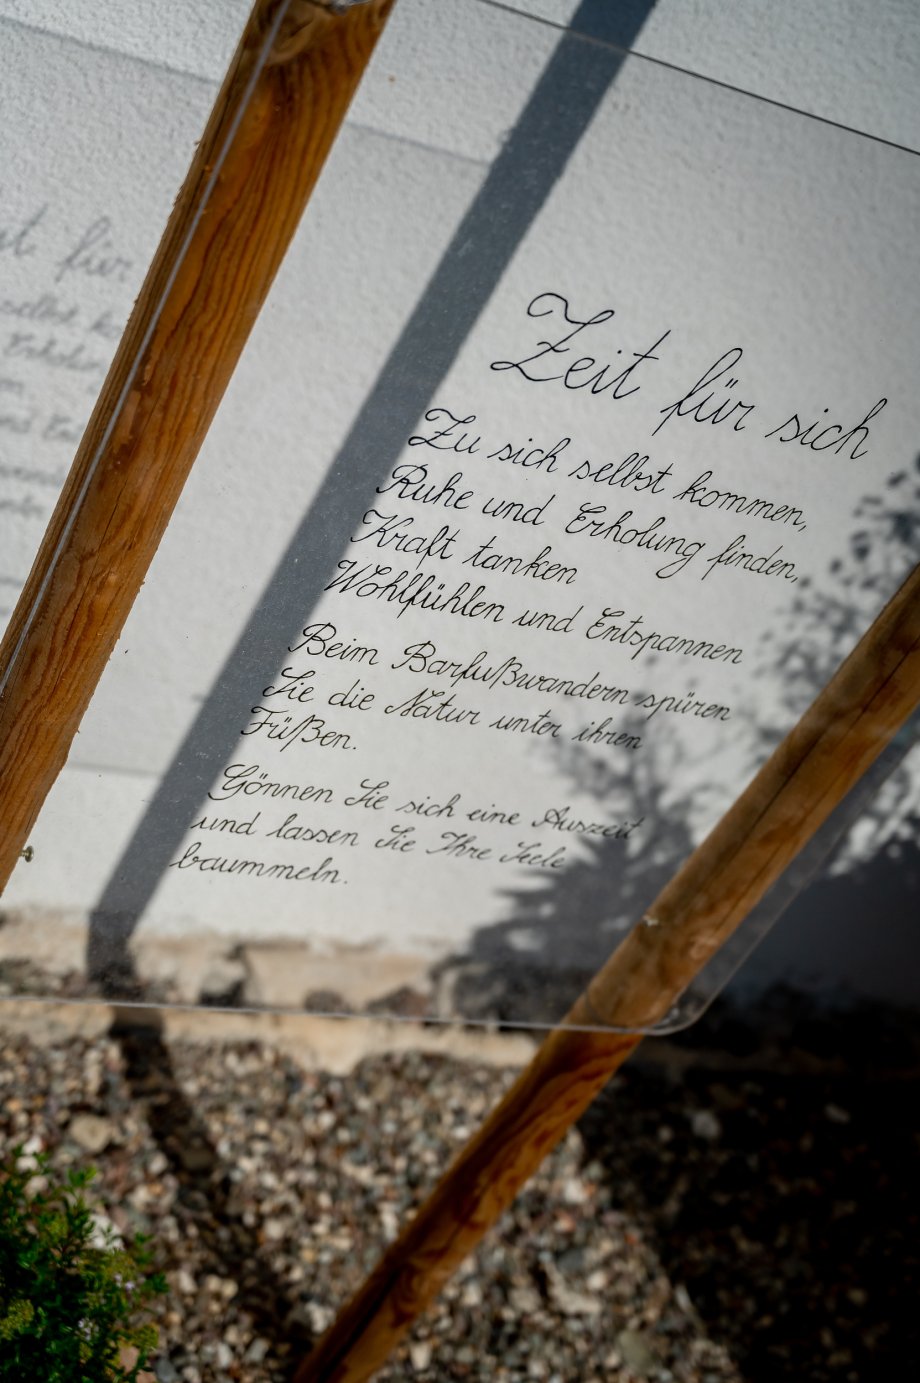 Zeit für sich
Zu sich selbst kommen,
Ruhe und Erholung finden,
Kraft tanken
Wohlfühlen und Entspannen
Beim Barfußwandern spüren
Sie die Natur unter ihren
Füßen.
Gönnen Sie sich eine Auszeit
und lassen Sie Ihre Seele
baummeln.